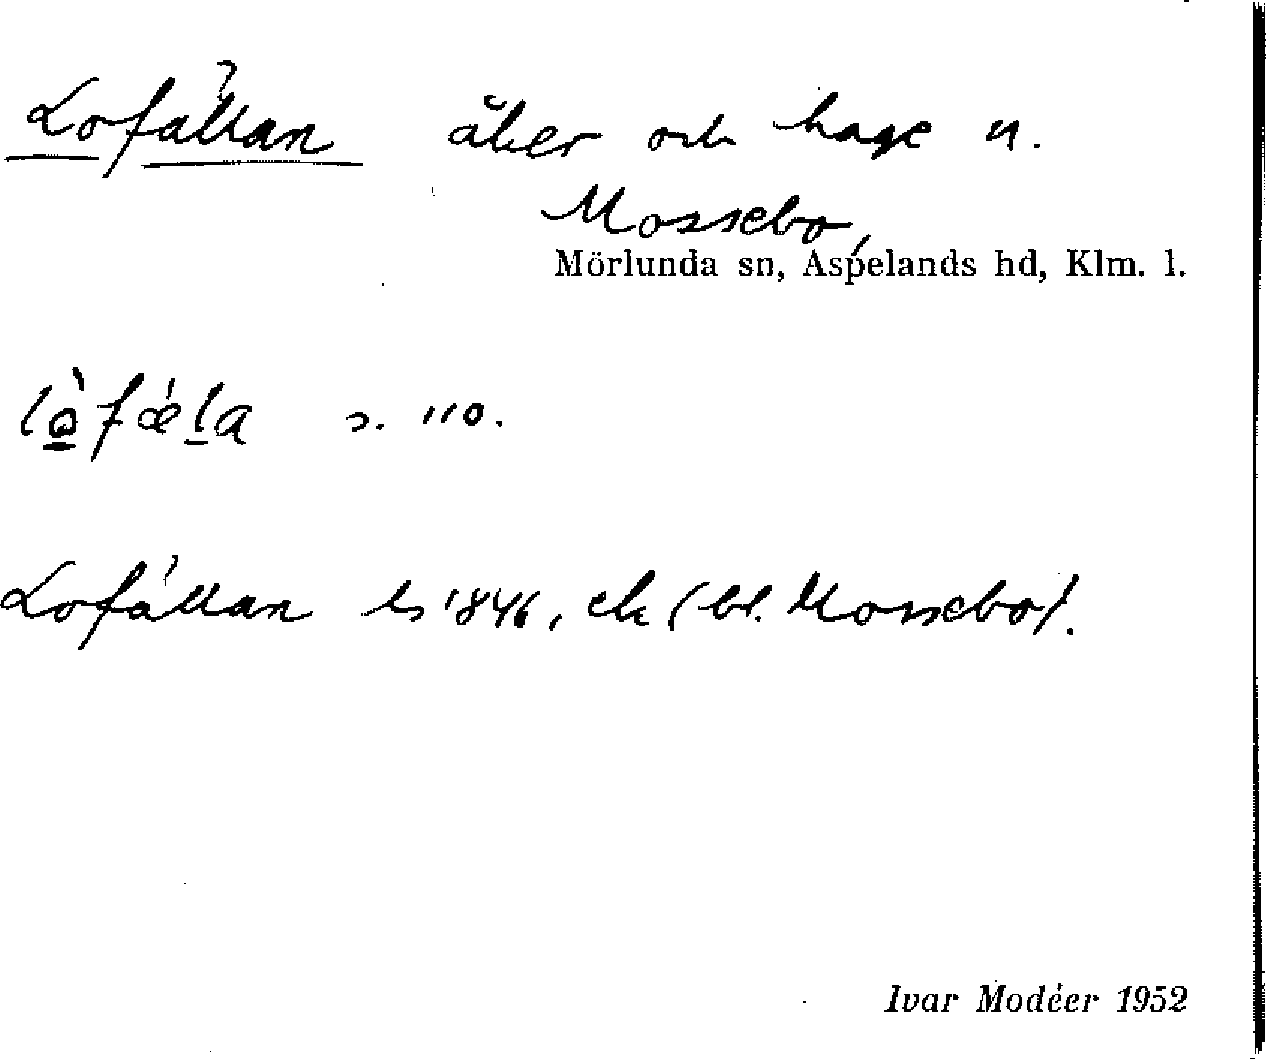 Lofällan åker och hage n.
Mossebo,
Mörlunda sn, Aspelands hd, Klm. l.
s. 110.
Lofällan ls 1846, ek (bl. Mossebo).
Ivar Modéer 1952